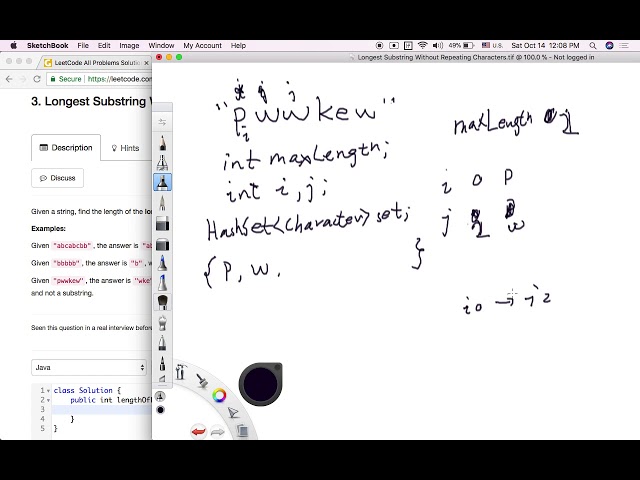 SketchBook File Edit Image Window My Account Help 49% U.S. Sat Oct 14 12:08 PM
LeetCode All Problems Solutio
Longest Substring Without Repeating Characters.tif @ 100.0 % - Not logged in
Secure https://leetcode.com
3. Longest Substring W
Description Hints
Discuss
Given a string, find the length of the lo
Examples:
Given "abcabcbb", the answer is "ab
Given "bbbbb", the answer is "b", w
Given "pwwkew", the answer is "wke"
and not a substring.
Seen this question in a real interview before
Java
1 class Solution {
2 public int lengthOfL
3
4 }
5 }
j
"pwwkew"
i
int maxLength;
int i, j;
HashSet<Character> set;
{ P, W, }
maxLength
i 0 P
j w
i 0 → j 2